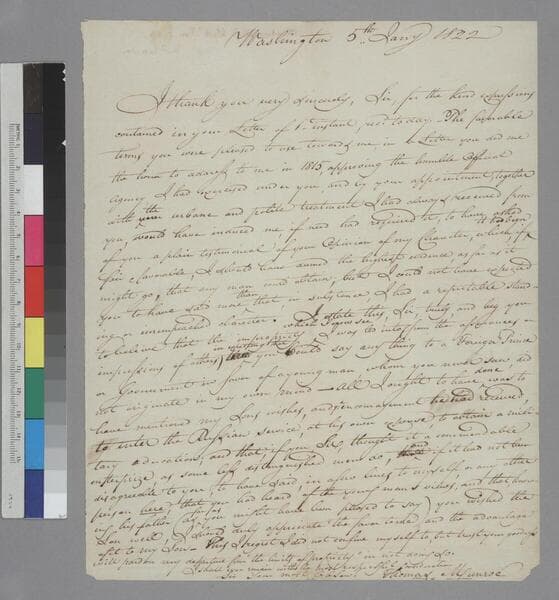 Washington 5th. Jany 1822
I thank you very sincerely, Sir for the kind expressions
contained in your Letter of 1st. instant, recd. today. The favorable
terms you were pleased to use toward me in a Letter you did me
the honor to address to me in 1815 approving the humble Official
agency I had exercised under you and by your appointment, together
with the urbane and polite treatment I had always received from
you, would have induced me if need had required it, to have asked
of you a plain testimonial of your Opinion of my Character, which, if
favorable, I should have deemed the highest evidence as far as it
might go, that any man could obtain, but I could not have expected
you to have said more than that in substance I had a respectable stand-
ing or unimpeached character. I state this, Sir, truly and beg you
to believe that the impropriety which I was
impressions of others) you could say any thing to a Foreign Prince
or Government in favor of a young man, whom you never saw, did
not originate in my own mind – All I ought to have done, was to
have mentioned my Sons wishes, and encouragement he had received,
to enter the Russian service, at his own expense, to obtain a mili-
tary education, and that if you, Sir, thought it a commendable
enterprize, as some distinguished men do, and if it had not been
disagreeable to you to have said, in a few lines to myself or any other
person here that you had heard of the young man's wishes, and that know-
ing his father (so far as you might have been pleased to say) you wished the
Son well. I should duly appreciate the favor and the advantage
of it to my Son. This, I regret I did not confine myself to, but trust your goodness
will pardon my departure from the limits of propriety in not doing so.
I shall ever remain with the most respectful consideration
Sir Your most
Thomas Munroe